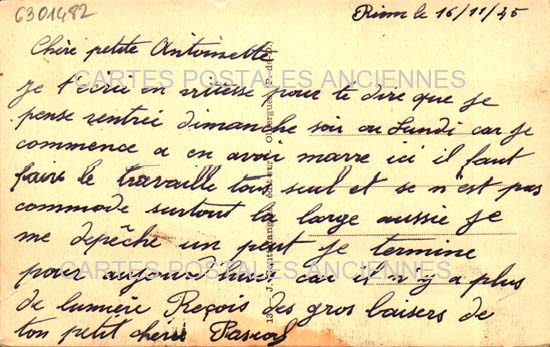 6301482
Riom le 16/11/45
Chéré petite Antoinette
CARTES POSTALES ANCIENNES
Je t'écrie en vitesse pour te dire que je
pense rentrée dimanche soir ou Lundi car je
commence a en avoir marre ici il faut
faire le travaille tous seul et se n'est pas
commode surtout la large aussie je
me depêche un peut je termine
pour aujourd'hui car il n'y a plus
CARTES POSTALES ANCIENNES
de lumière Reçois des gros baisers de
ton petit cheri Pascal